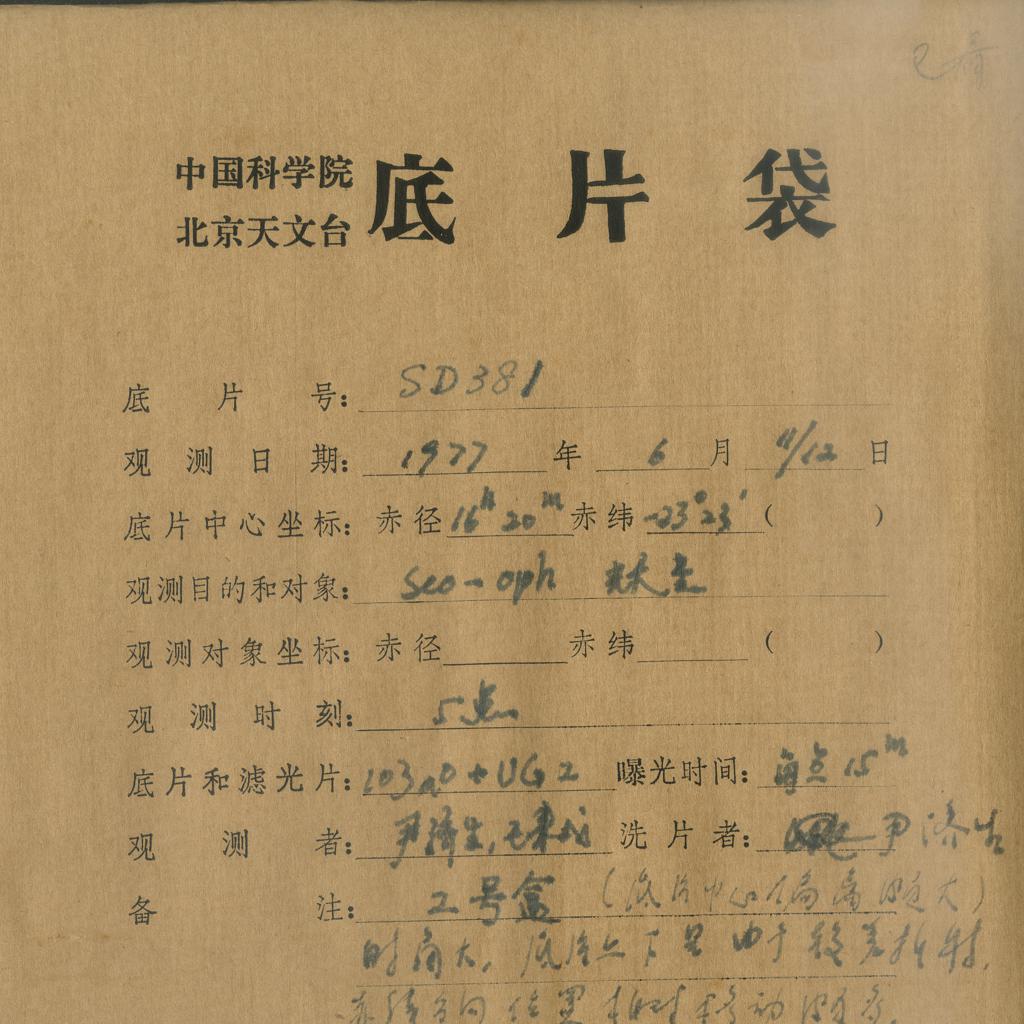 已看
中国科学院
北京天文台 底片袋
底片号: SD381
观测日期: 1977 年 6 月 11/12 日
底片中心坐标: 赤径 16h 20m 赤纬 -23°23′ ( )
观测目的和对象: Sco-oph
观测对象坐标: 赤径 赤纬 ( )
观测时刻: 5点
底片和滤光片: 103aO + UG2 曝光时间: 每点 15m
观测者: 尹济生, 洗片者: 尹济生
备注: 2号盒 (底片中心偏离 大)
时角大, 底片上下 由于较差折射,
位置相对移动